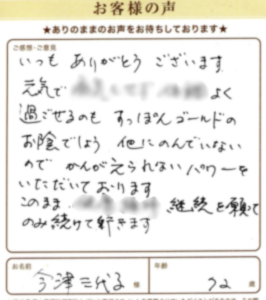 お客様の声
★ありのままのお声をお待ちしております★
ご感想・ご意見
いつも ありがとう ございます
元気で よく
過ごせるのも すっぽんゴールドの
お陰でしょう 他にのんでいない
ので かんがえられない パワーを
いただいております
このまま 継続を願って
のみ続けて行きます
お名前
年齢
今津三代子 様
72 歳